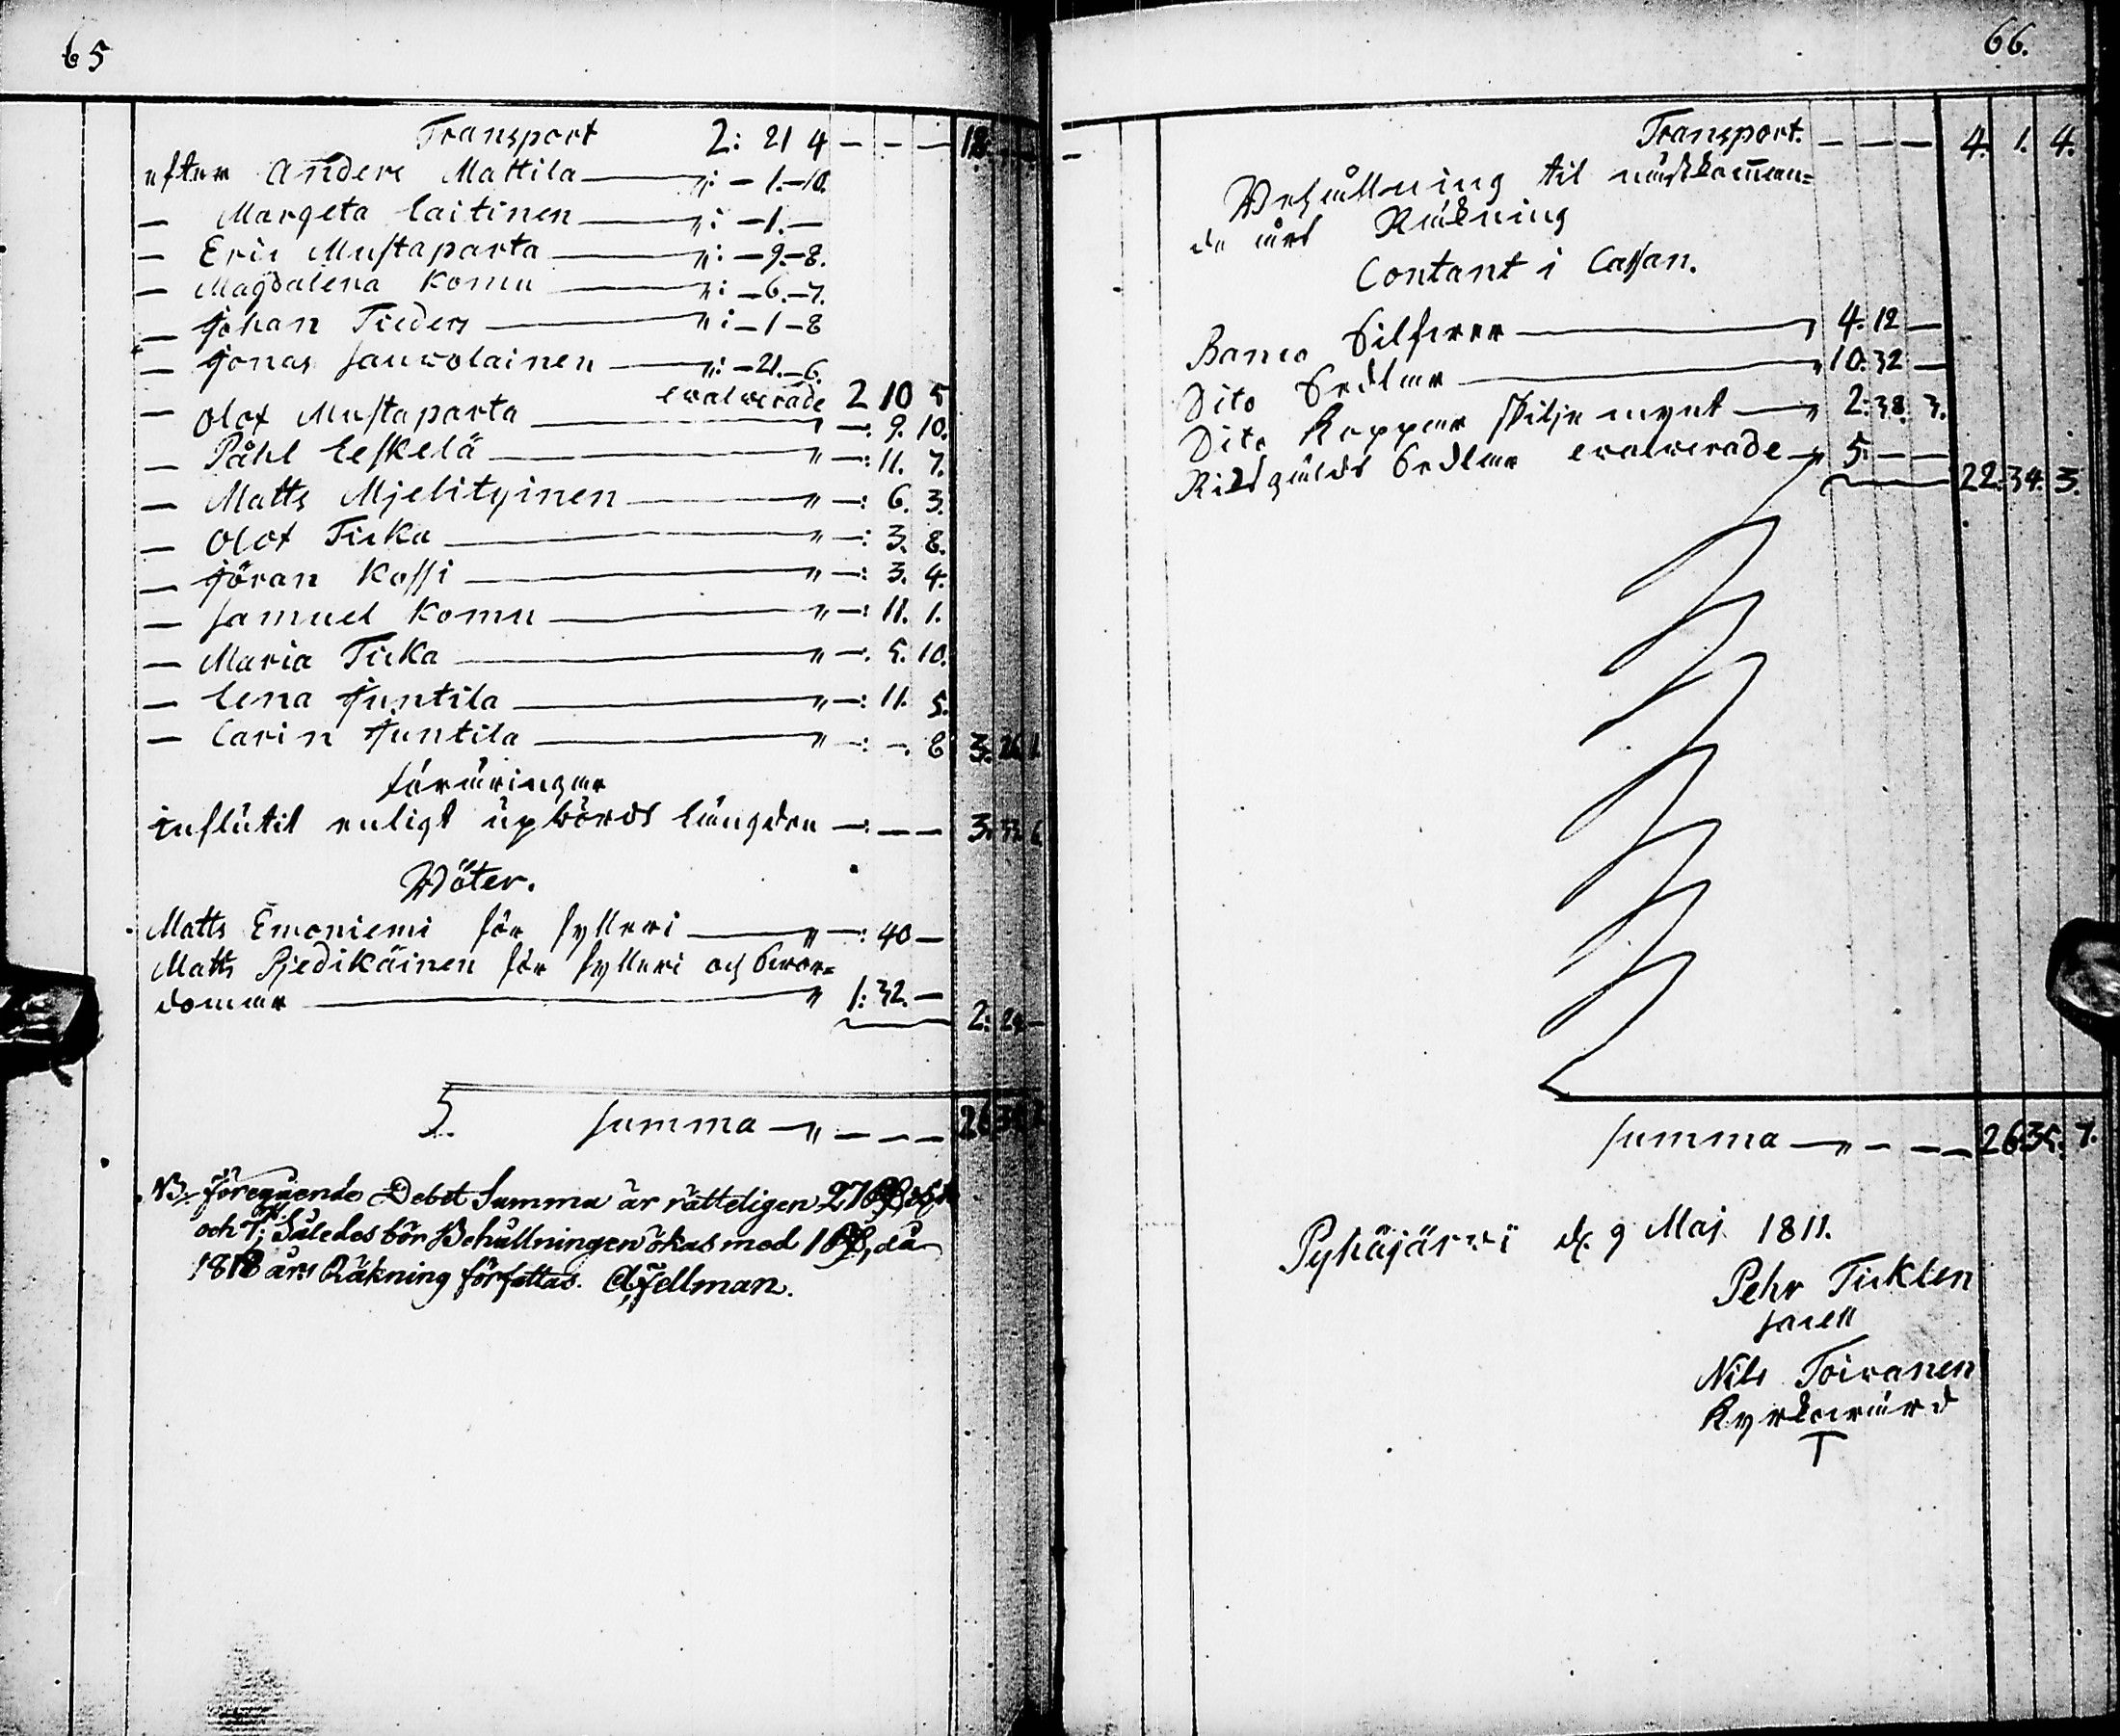 65
Transport 2: 21 4 — — — 18
efter Anders Mattila — „: — 1. — 10.
— Margeta Laitinen — „: — 1. —
— Eric Mustaparta — „: — 9. — 8.
— Magdalena Komu — „: — 6. — 7.
— Johan Tieders — „: — 1 — 8
— Jonas Sauvolainen — „: — 21. — 6.
evalverade 2 10 5
— Olof Mustaparta — „ —. 9. 10.
— Påhl Leskelä — „ —: 11. 7.
— Matts Mjelityinen — „ —: 6. 3.
— Olof Ticka — „ —: 3. 8.
— Jöran Kossi — „ —: 3. 4.
— Samuel Komu — „ —: 11. 1.
— Maria Ticka — „ —. 5. 10.
— Lena Juntila — „ —: 11. 5.
— Carin Juntila — „ —: —. 8 3. 26 1.
Föräringar
influtit enligt upbörds längden — — — 3. 33. 6
Böter.
Matts Emoniemi för fylleri — „ —: 40 —
Matts Pjedikäinen för fylleri och Svor=
domar — „ 1: 32. — 2: 24 —
Summa — „ — — — 26
NB. Föregående Debet Summa är rätteligen 27
och 7; Således bör Behållningen ökas med 1 då
1812 års Räkning författas. Fellman.
66.
Transport. — — — 4. 1. 4.
Behållning til nästkomman=
de års Räkning
Contant i Cassan.
Banco Silfver — „ 4. 12 —
Dito Sedlar — „ 10. 32 —
Dito Koppar skilje mynt — „ 2: 38. 3.
Riksgälds Sedlar evalverade — „ 5. — — 22. 34. 3.
Summa — „ — — — 26. 35. 7.
Pyhäjärvi d. 9 Maj 1811.
Pehr Ticklen
Sacell
Nils Toivanen
Kyrkovärd
T